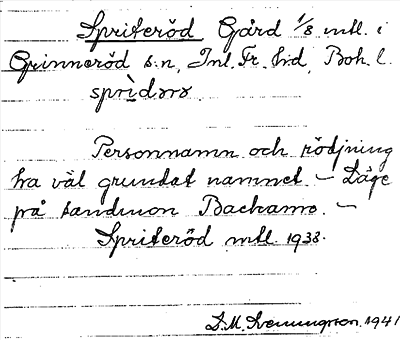 Spriteröd Gård 1/8 mtl. i
Grinneröd s:n, Inl. Fr. hd, Boh. l.
sprìdərə
Personnamn och rödjning
ha väl grundat namnet – Läge
på sandmon Backamo. –
Spriteröd mtl. 1938.
D.M. Svenungsson. 1941